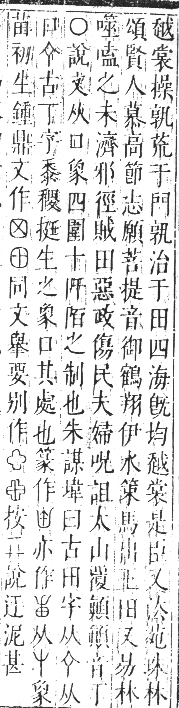 越裳操孰荒于門孰治于田四海旣均越裳是臣又
頌賢人慕高節志願菩提音御鶴翔伊水策馬出王田又易林
噬嗑之未濟邪徑賊田惡政傷民夫婦呪詛太山覆顚顚音丁
〇說文从口象四圍十阡陌之制也朱謀㙔曰古田字从仒从
仒古丁字黍稷挺生之象口其處也篆作亦作𤰔从屮象
苗初生鍾鼎文作⊗⊕同文舉要別作按說迂泥甚